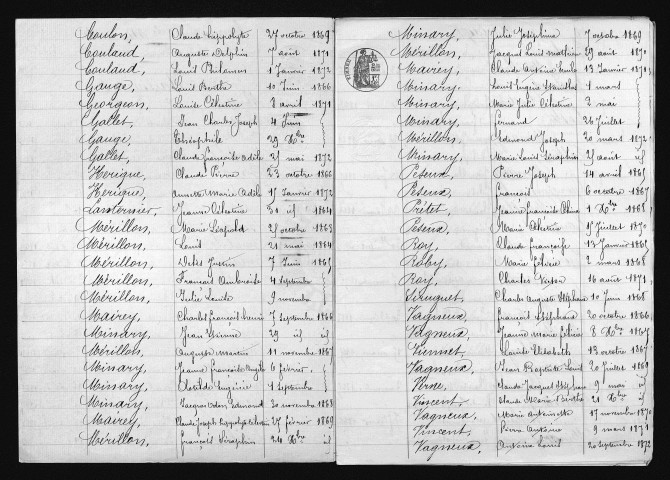 Coulon, Claude hippolyte 27 octobre 1869
Couland, Auguste Delphin 7 août 1871
Couland, Louis 1 Janvier 1872
Gauge, Louis Berthe 10 Juin 1866
Georgeon, Louise Célestine 8 avril 1871
Gallet, Jean Charles Joseph 4 Juin
Gauge, Théophile 29 Xbre
Gallet, Claude françoise Adèle 2 mai 1872
Herigué, Claude Pierre 23 octobre 1866
Herigué, Annette Marie Adèle 15 Janvier 1872
Lanternier, Jeanne Célestine 30 id 1864
Mérillon, Marie Léopold 28 octobre 1863
Mérillon, Louis 21 mai 1864
Mérillon, Justin 7 Juin 1865
Mérillon, Francois Ambroise 4 Septembre
Mérillon, Julie Louise 9 novembre
Mairey, Charles francois 7 Septembre 1866
Minary, Jean 29 id id
Mérillon, Auguste Martin 11 novembre 1867
Minary, Jeanne francoise 6 février
Minary, Clotilde Eugénie 1 Septembre
Minary, Edmond 30 novembre 1868
Mairey, Claude Joseph hippolyte 27 février 1869
Mérillon, françois Séraphin 24 Xbre id
Minary, Julie Joséphine 7 octobre 1869
Mérillon, Jacques Louis 29 août 1870
Mairey, Claude Antoine 13 Janvier 1871
Minary, Louis Eugène 4 mars
Minary, Marie Julie Célestine 2 mai
Minary, Fernand 24 Juillet
Mérillon, Edmond Joseph 20 mars 1872
Minary, Marie Louis Séraphin 25 août id
Péseux, Pierre Joseph 14 avril 1865
Péseux, francois 6 octobre 1867
Prêtet, Jeanne francoise 1 Xbre 1868
Péseux, Marie Célestine 15 Juillet 1870
Roy, Claude françoise 13 Janvier 1865
Roby, Marie 2 mars 1868
Roy, Charles Victor 16 août 1871
Séruguet, Charles Auguste Stéphane 10 Juin 1868
Vagneux, francois Stéphane 20 octobre 1866
Vagneux, Jeanne Marie 8 Xbre 1867
Viennet, Claude Elisabeth 13 octobre 1867
Vagneux, Jean Baptiste Louis 20 Juillet 1869
Claude Jacques 9 mai id
Vincent, Claude Marie Berthe 21 Xbre id
Vagneux, Marie Antoinette 17 novembre 1870
Vincent, Pierre Antoine 9 mars 1871
Vagneux, Antoine Louis 20 Septembre 1872